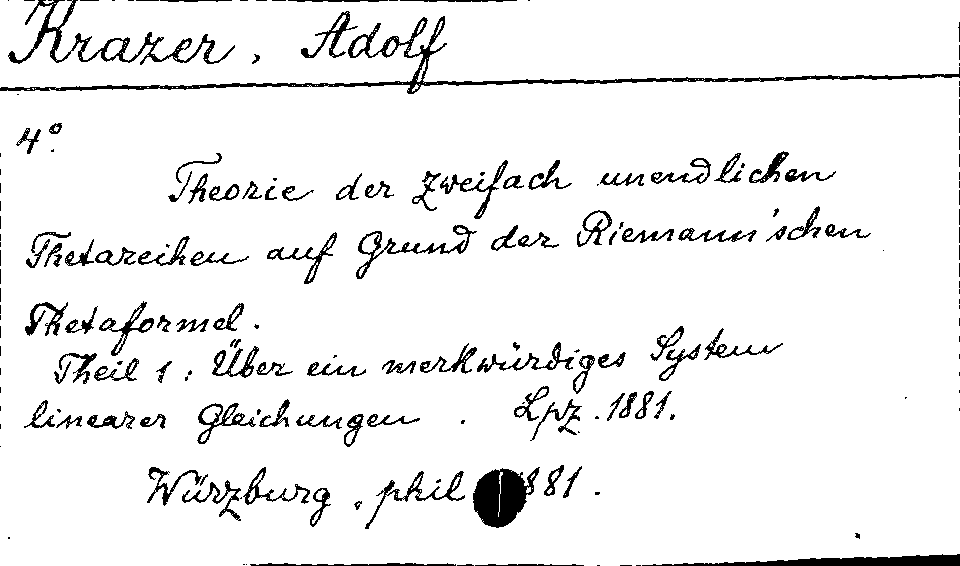 Krazer, Adolf
4°.
Theorie der zweifach unendlichen
Thetareihen auf Grund der Riemann'schen
Thetaformel.
Theil 1: Über ein merkwürdiges System
linearer Gleichungen. Lpz. 1881.
Würzburg, phil 1881.